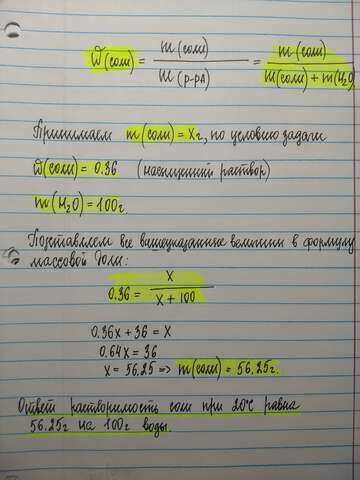 ω(соли) = m(соли) / m(р-ра) = m(соли) / m(соли) + m(H₂O)
Принимаем m(соли) = Xг, по условию задачи
ω(соли) = 0.36 (насыщенный раствор)
m(H₂O) = 100г.
Подставляем все вышеуказанные величины в формулу
массовой доли:
0.36 = X / X + 100
0.36X + 36 = X
0.64X = 36
X = 56.25 => m(соли) = 56.25г.
Ответ растворимость соли при 20°С равна
56.25г на 100г воды.